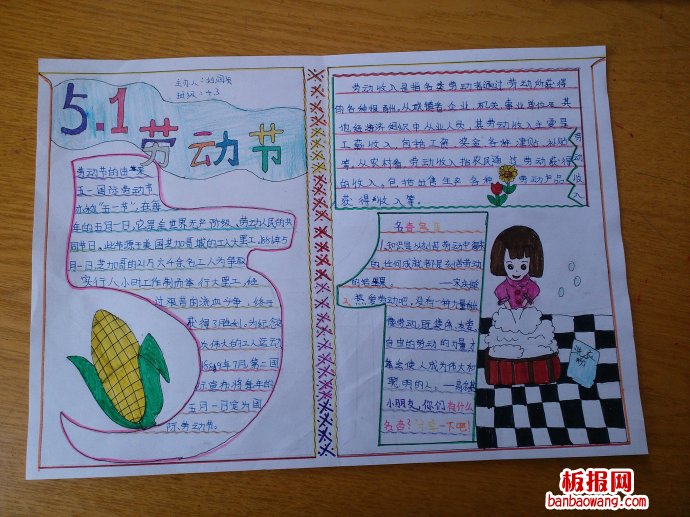 5.1劳动节
主办人:
班级:4.3
劳动节的由来
五一国际劳动节
亦称"五一节",在每
年的五月一日。它是全世界无产阶级、劳动人民的共
同节日。此节源于美国芝加哥城的工人大罢工。1886年5
月1日,芝加哥的21万6千余名工人为争取
实行八小时工作制而举行大罢工,经
过艰苦的流血斗争,终于
获得了胜利。为纪念
次伟大的工人运动
1889年7月,第二国
际宣布将每年的
五月一日定为国
际劳动节。
劳动收入是指各类劳动者通过劳动所获得
的各种报酬。从城镇看企业、机关、事业单位及其
他经济组织中从业人员,其劳动收入主要是
工薪收入,包括工资、奖金、各种津贴、补贴
等。从农村看,劳动收入指农民通过劳动获得
的收入,包括出售生产各种劳动产品
获得收入等。
劳动收入
名言
1.知识是从刻苦劳动中
的,任何成就都是刻苦劳动
的结果。——宋庆龄
2.热爱劳动吧。没有一种力量能
像劳动,既集体、友爱、
自由的劳动的力量才
能使人成为伟大和
聪明的人。——高尔基
小朋友,你们有什么
名言?一下吧!
洗衣粉
板报网
banbaowang.com